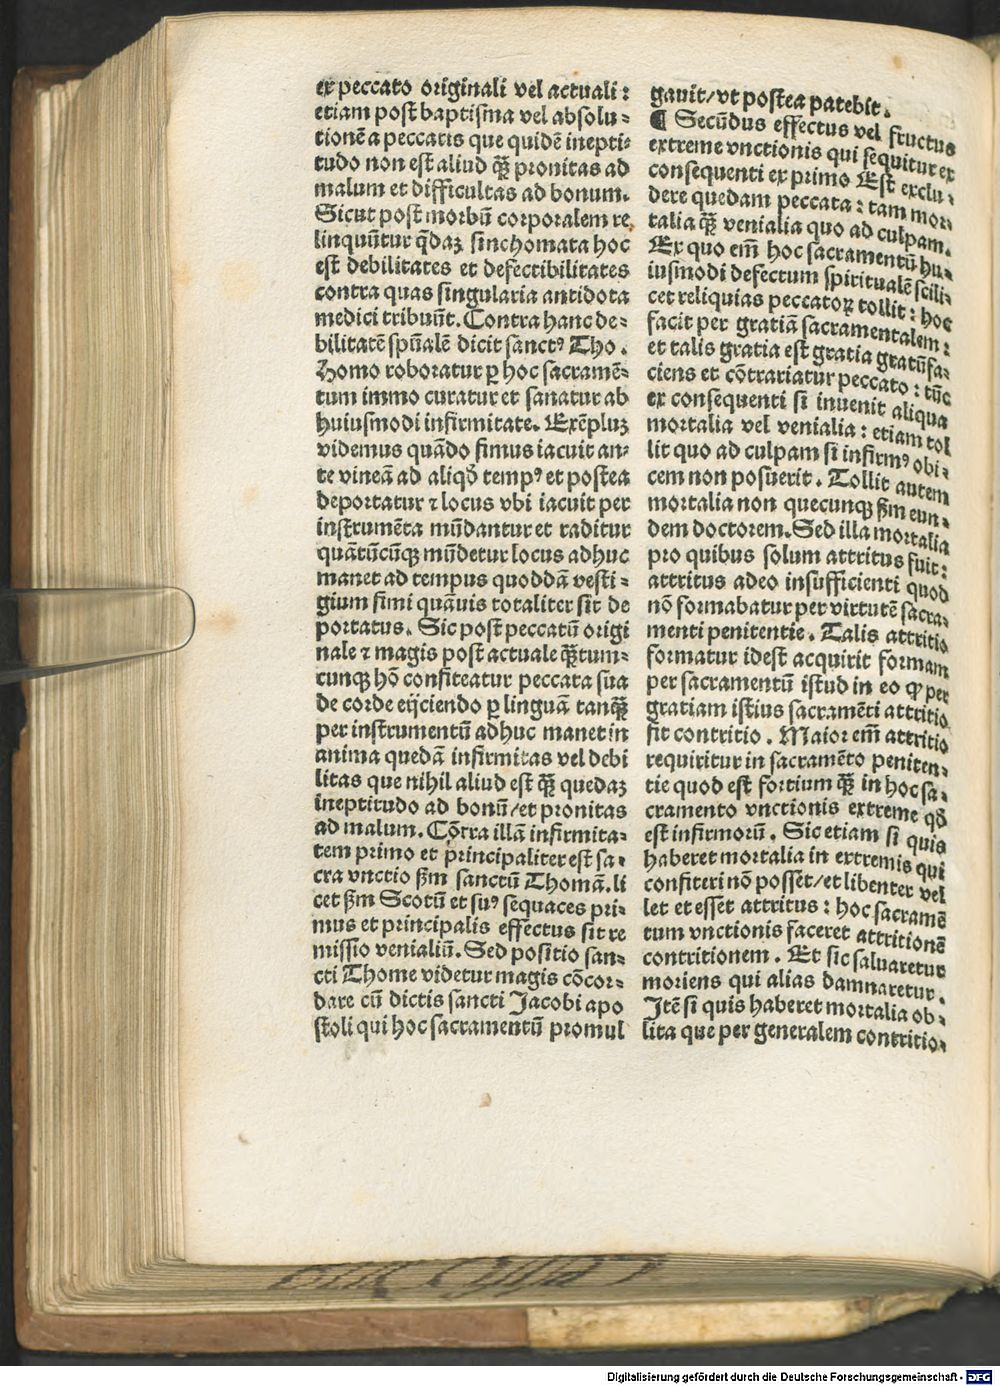 ex peccato originali vel actuali:
etiam post baptisma vel absolu⸗
tionē a peccatis que quidē inepti⸗
tudo non est aliud qꝫ̄ pronitas ad
malum et difficultas ad bonum.
Sicut post morbū corporalem re
linquūtur q̄daꝫ sinchomata hoc
est debilitates et defectibilitates
contra quas singularia antidota
medici tribuūt. Contra hanc de⸗
bilitatē spūalē dicit sanctꝰ Tho.
Homo roboratur ꝑ hoc sacramē⸗
tum immo curatur et sanatur ab
huiusmodi infirmitate. Exēpluꝫ
videmus quādo fimus iacuit an⸗
te vineā ad aliqd̄ tempꝰ et postea
deportatur ⁊ locus vbi iacuit per
instrumēta mūdantur et raditur
quātūcūqꝫ mūdetur locus adhuc
manet ad tempus quoddā vesti⸗
gium fimi quāuis totaliter sit de
portatus. Sic post peccatū origi
nale ⁊ magis post actuale qꝫ̄tum⸗
cunqꝫ hō confiteatur peccata sūa
de corde eijciendo ꝑ linguā tanqꝫ̄
per instrumentū adhuc manet in
anima quedā infirmitas vel debi
litas que nihil aliud est qꝫ̄ quedaꝫ
ineptitudo ad bonū/et pronitas
ad malum. Cōtra illā infirmita⸗
tem primo et principaliter est sa⸗
cra vnctio ẜm sanctū Thomā. li
cet ẜm Scotū et suꝰ sequaces pri⸗
mus et principalis effectus sit re
missio venialiū. Sed positio san⸗
cti Thome videtur magis cōcor⸗
dare cū dictis sancti Jacobi apo
stoli qui hoc sacramentū promul
gauit/vt postea patebit.
¶ Secūdus effectus vel fructus
extreme vnctionis qui sequitur ex
consequenti ex primo Est exclu⸗
dere quedam peccata: tam mor⸗
talia qꝫ̄ venialia quo ad culpam.
Ex quo em̄ hoc sacramentū hu⸗
iusmodi defectum spiritualē scili⸗
cet reliquias peccatoꝝ tollit: hoc
facit per gratiā sacramentalem:
et talis gratia est gratia gratūfa⸗
ciens et cōtrariatur peccato: tūc
ex consequenti si inuenit aliqua
mortalia vel venialia: etiam tol
lit quo ad culpam si infirmꝰ obi⸗
cem non posuerit. Tollit autem
mortalia non quecunqꝫ ẜm eun⸗
dem doctorem. Sed illa mortalia
pro quibus solum attritus fuit:
attritus adeo insufficienti quod
nō formabatur per virtutē sacra⸗
menti penitentie. Talis attritio
formatur idest acquirit formam
per sacramentū istud in eo ꝙ per
gratiam istius sacramēti attritio
fit contritio. Maior em̄ attritio
requiritur in sacramēto peniten⸗
tie quod est fortium qꝫ̄ in hoc sa⸗
cramento vnctionis extreme qd̄
est infirmorū. Sic etiam si quis
haberet mortalia in extremis qui
confiteri nō posset/et libenter vel
let et esset attritus: hoc sacramē
tum vnctionis faceret attritionē
contritionem. Et sic saluaretur
moriens qui alias damnaretur.
Itē si quis haberet mortalia ob⸗
lita que per generalem contritio⸗
Digitalisierung gefördert durch die Deutsche Forschungsgemeinschaft - DFG